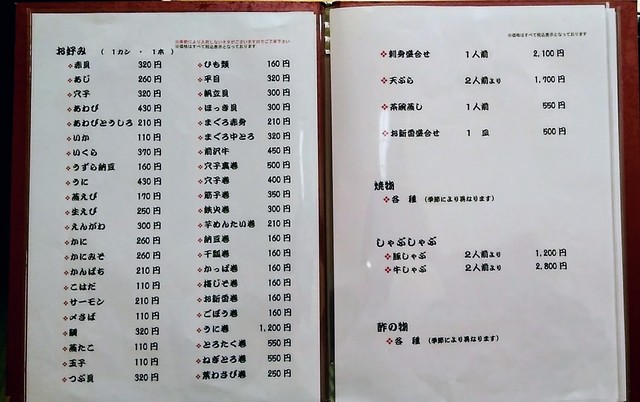 ※季節により入荷しないネタがございますのでご了承下さい
※価格はすべて税込表示となっております
お好み （1カン・1本）
赤貝 320円
あじ 260円
穴子 320円
あわび 430円
あわびとうしろ 210円
いか 110円
いくら 370円
うずら納豆 160円
うに 430円
蒸えび 170円
生えび 250円
えんがわ 300円
かに 260円
かにみそ 260円
かんぱち 210円
こはだ 110円
サーモン 210円
〆さば 110円
鯛 320円
蒸たこ 110円
玉子 110円
つぶ貝 320円
ひも類 160円
平目 320円
帆立貝 300円
ほっき貝 300円
まぐろ赤身 210円
まぐろ中とろ 320円
前沢牛 450円
穴子裏巻 500円
穴子巻 400円
筋子巻 350円
鉄火巻 300円
芋めんたい巻 210円
納豆巻 160円
干瓢巻 160円
かっぱ巻 160円
梅じそ巻 160円
お新香巻 160円
ごぼう巻 160円
うに巻 1,200円
とろたく巻 550円
ねぎとろ巻 550円
葉わさび巻 250円
※価格はすべて税込表示となっております
刺身盛合せ 1人前 2,100円
天ぷら 2人前より 1,700円
茶碗蒸し 1人前 550円
お新香盛合せ 1皿 500円
焼物
各種（季節により異なります）
しゃぶしゃぶ
豚しゃぶ 2人前より 1,200円
牛しゃぶ 2人前より 2,800円
酢の物
各種（季節により異なります）